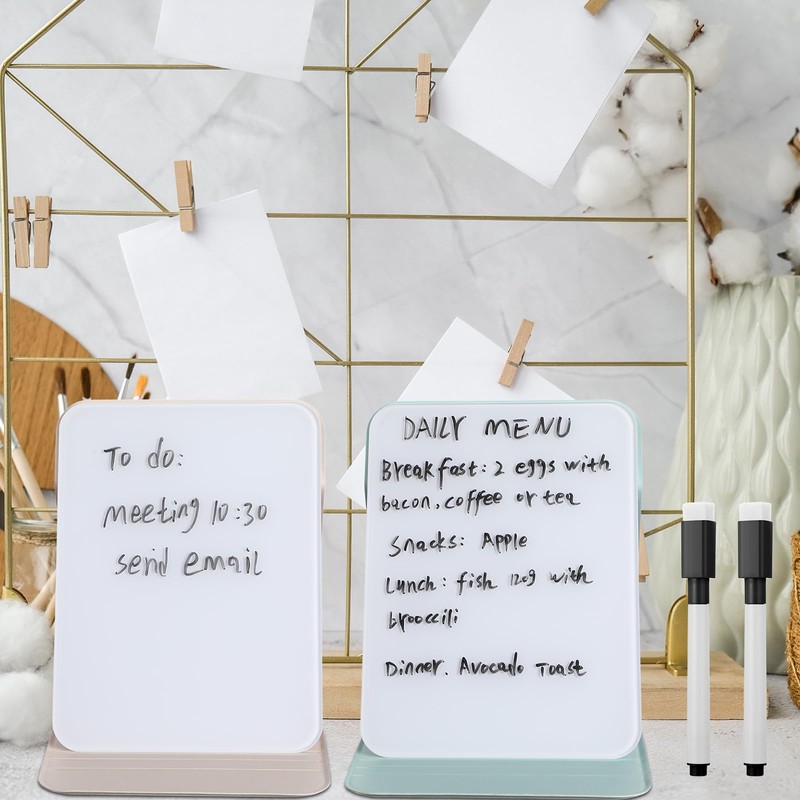 To do:
meeting 10:30
send email
DAILY MENU
Breakfast: 2 eggs with
bacon, coffee or tea
Snacks: Apple
Lunch: fish 120g with
brooccili
Dinner. Avocado Toast